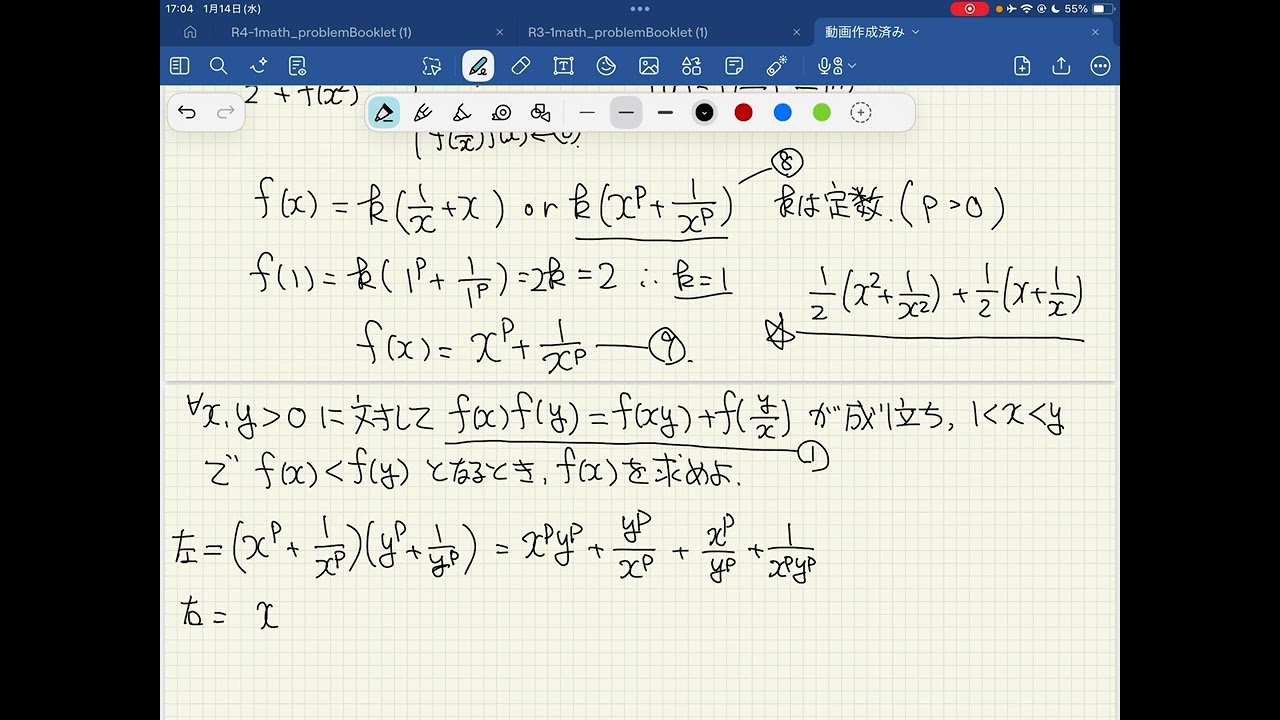 17:04 1月14日(水) 55%
R4-1math_problemBooklet (1) R3-1math_problemBooklet (1) 動画作成済み
2 + f(x²)
f(x) = k(1/x + x) or k(x^p + 1/x^p) ⑧ kは定数. (p>0)
f(1) = k(1^p + 1/1^p) = 2k = 2 ∴ k=1
1/2(x² + 1/x²) + 1/2(x + 1/x)
f(x) = x^p + 1/x^p ⑨.
∀x, y > 0 に対して f(x)f(y) = f(xy) + f(y/x) が成り立ち, 1<x<y
①
で f(x) < f(y) となるとき, f(x)を求めよ.
左 = (x^p + 1/x^p)(y^p + 1/y^p) = x^p y^p + y^p/x^p + x^p/y^p + 1/x^p y^p
右 = x